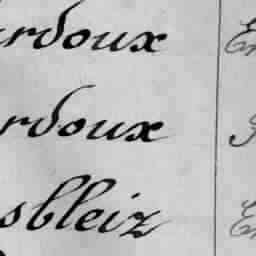 rdoux
rdoux
sbleiz